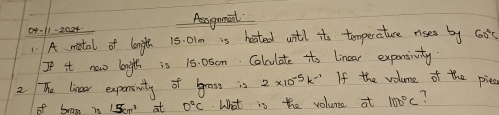 Assignment.
04-11-2024
1. A metal of length 15.01m is heated until its temperature rises by 60°C
If t new length is 15.05cm. Calculate its linear expansivity.
2. The linear expansivity of brass is 2 x10⁻⁵k⁻¹ If the volume of the piece
of brass is 15cm³ at 0°C. What is the volume at 100°C?